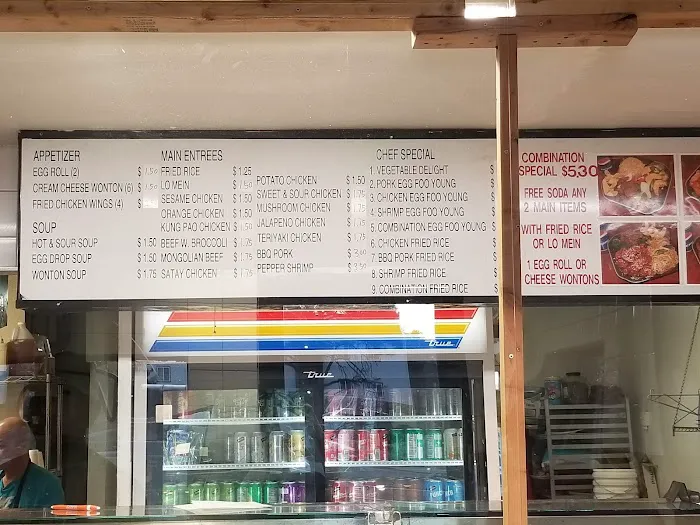 APPETIZER
EGG ROLL (2) $ 1.50
CREAM CHEESE WONTON (6) $ 1.50
FRIED CHICKEN WINGS (4) $
SOUP
HOT & SOUR SOUP $ 1.50
EGG DROP SOUP $ 1.50
WONTON SOUP $ 1.75
MAIN ENTREES
FRIED RICE $ 1.25
LO MEIN $ 1.50
SESAME CHICKEN $ 1.50
ORANGE CHICKEN $ 1.50
KUNG PAO CHICKEN $ 1.50
BEEF W. BROCCOLI $ 1.75
MONGOLIAN BEEF $ 1.75
SATAY CHICKEN $ 1.75
POTATO CHICKEN $ 1.50
SWEET & SOUR CHICKEN $ 1.75
MUSHROOM CHICKEN $ 1.75
JALAPENO CHICKEN $ 1.75
TERIYAKI CHICKEN $ 1.75
BBQ PORK $
PEPPER SHRIMP $
CHEF SPECIAL
1. VEGETABLE DELIGHT $
2. PORK EGG FOO YOUNG $
3. CHICKEN EGG FOO YOUNG $
4. SHRIMP EGG FOO YOUNG $
5. COMBINATION EGG FOO YOUNG $
6. CHICKEN FRIED RICE $
7. BBQ PORK FRIED RICE $
8. SHRIMP FRIED RICE $
9. COMBINATION FRIED RICE $
COMBINATION
SPECIAL $5.30
FREE SODA ANY
2 MAIN ITEMS
WITH FRIED RICE
OR LO MEIN
1 EGG ROLL OR
CHEESE WONTONS
True
True